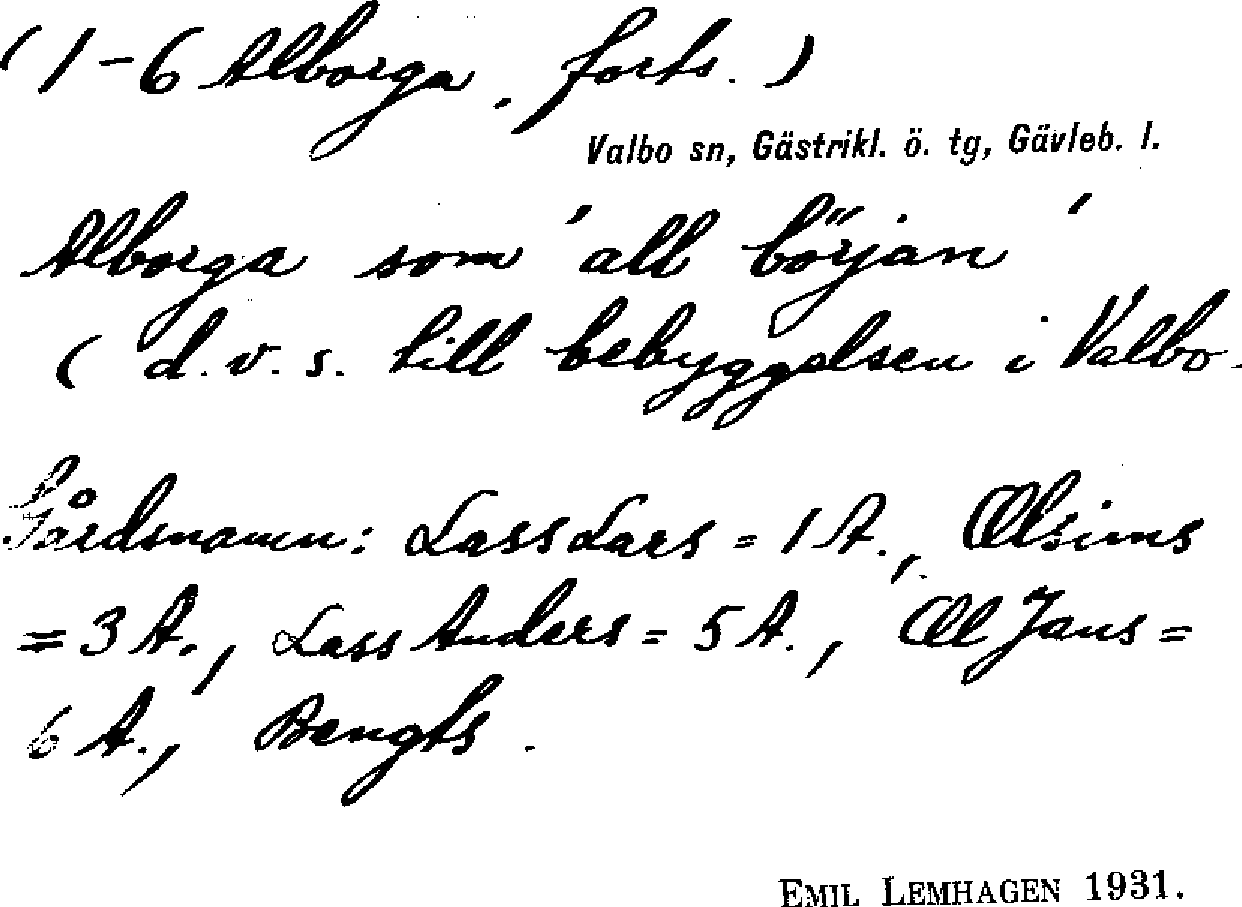 (1-6 Alborga, forts.)
Valbo sn, Gästrikl. ö. tg, Gävleb. l.
Alborga som 'all början'
(d.v.s. till bebyggelsen i Valbo.
Gårdsnamn: Lass Lars = 1 A., Olsims
= 3 A., Lass Anders = 5 A., Oll Jans =
6 A., Bengts.
EMIL LEMHAGEN 1931.